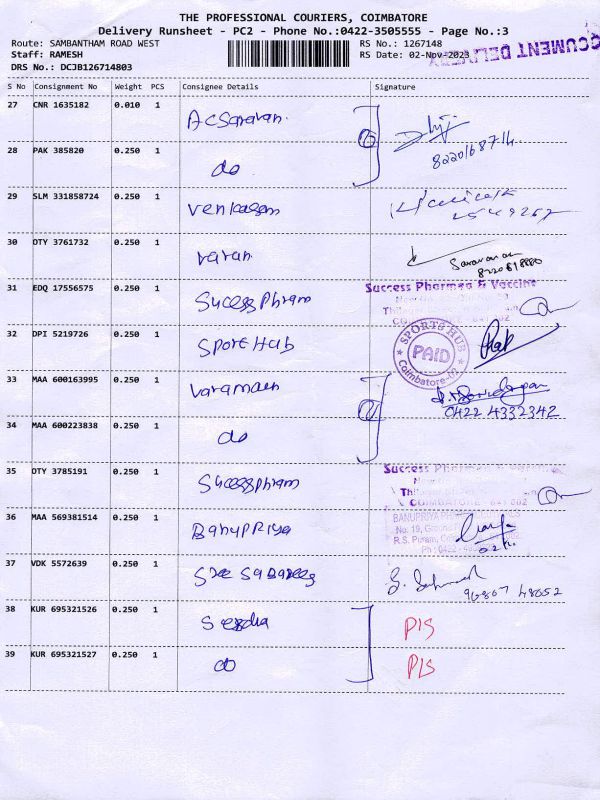 THE PROFESSIONAL COURIERS, COIMBATORE
Delivery Runsheet - PC2 - Phone No.:0422-3505555 - Page No.:3
Route: SAMBANTHAM ROAD WEST RS No.: 1267148
Staff: RAMESH RS Date: 02-Nov-2023
DRS No.: DCJB126714803
DOCUMENT DELIVERY
S No Consignment No Weight PCS Consignee Details Signature
27 CNR 1635182 0.010 1 Acsaravan
8220168714
28 PAK 385820 0.250 1 do
29 SLM 331858724 0.250 1 Venkasam
30 OTY 3761732 0.250 1 varan
Saravanan
31 EDQ 17556575 0.250 1 SucessPhram
Success Pharmea & Vaccine
32 DPI 5219726 0.250 1 SPORT HUB
SPORTS HUB
PAID
Coimbatore
33 MAA 600163995 0.250 1 varaman
0422 4332342
34 MAA 600223838 0.250 1 do
35 OTY 3785191 0.250 1 Sucessphram
Success
COIMBATORE - 641 002
36 MAA 569381514 0.250 1 BanuPRiya
BANUPRIYA
No: 19,
R.S. Puram,
Ph : 0422 -
37 VDK 5572639 0.250 1 Sree Sabarees
96867 48652
38 KUR 695321526 0.250 1 P/S
39 KUR 695321527 0.250 1 do P/S